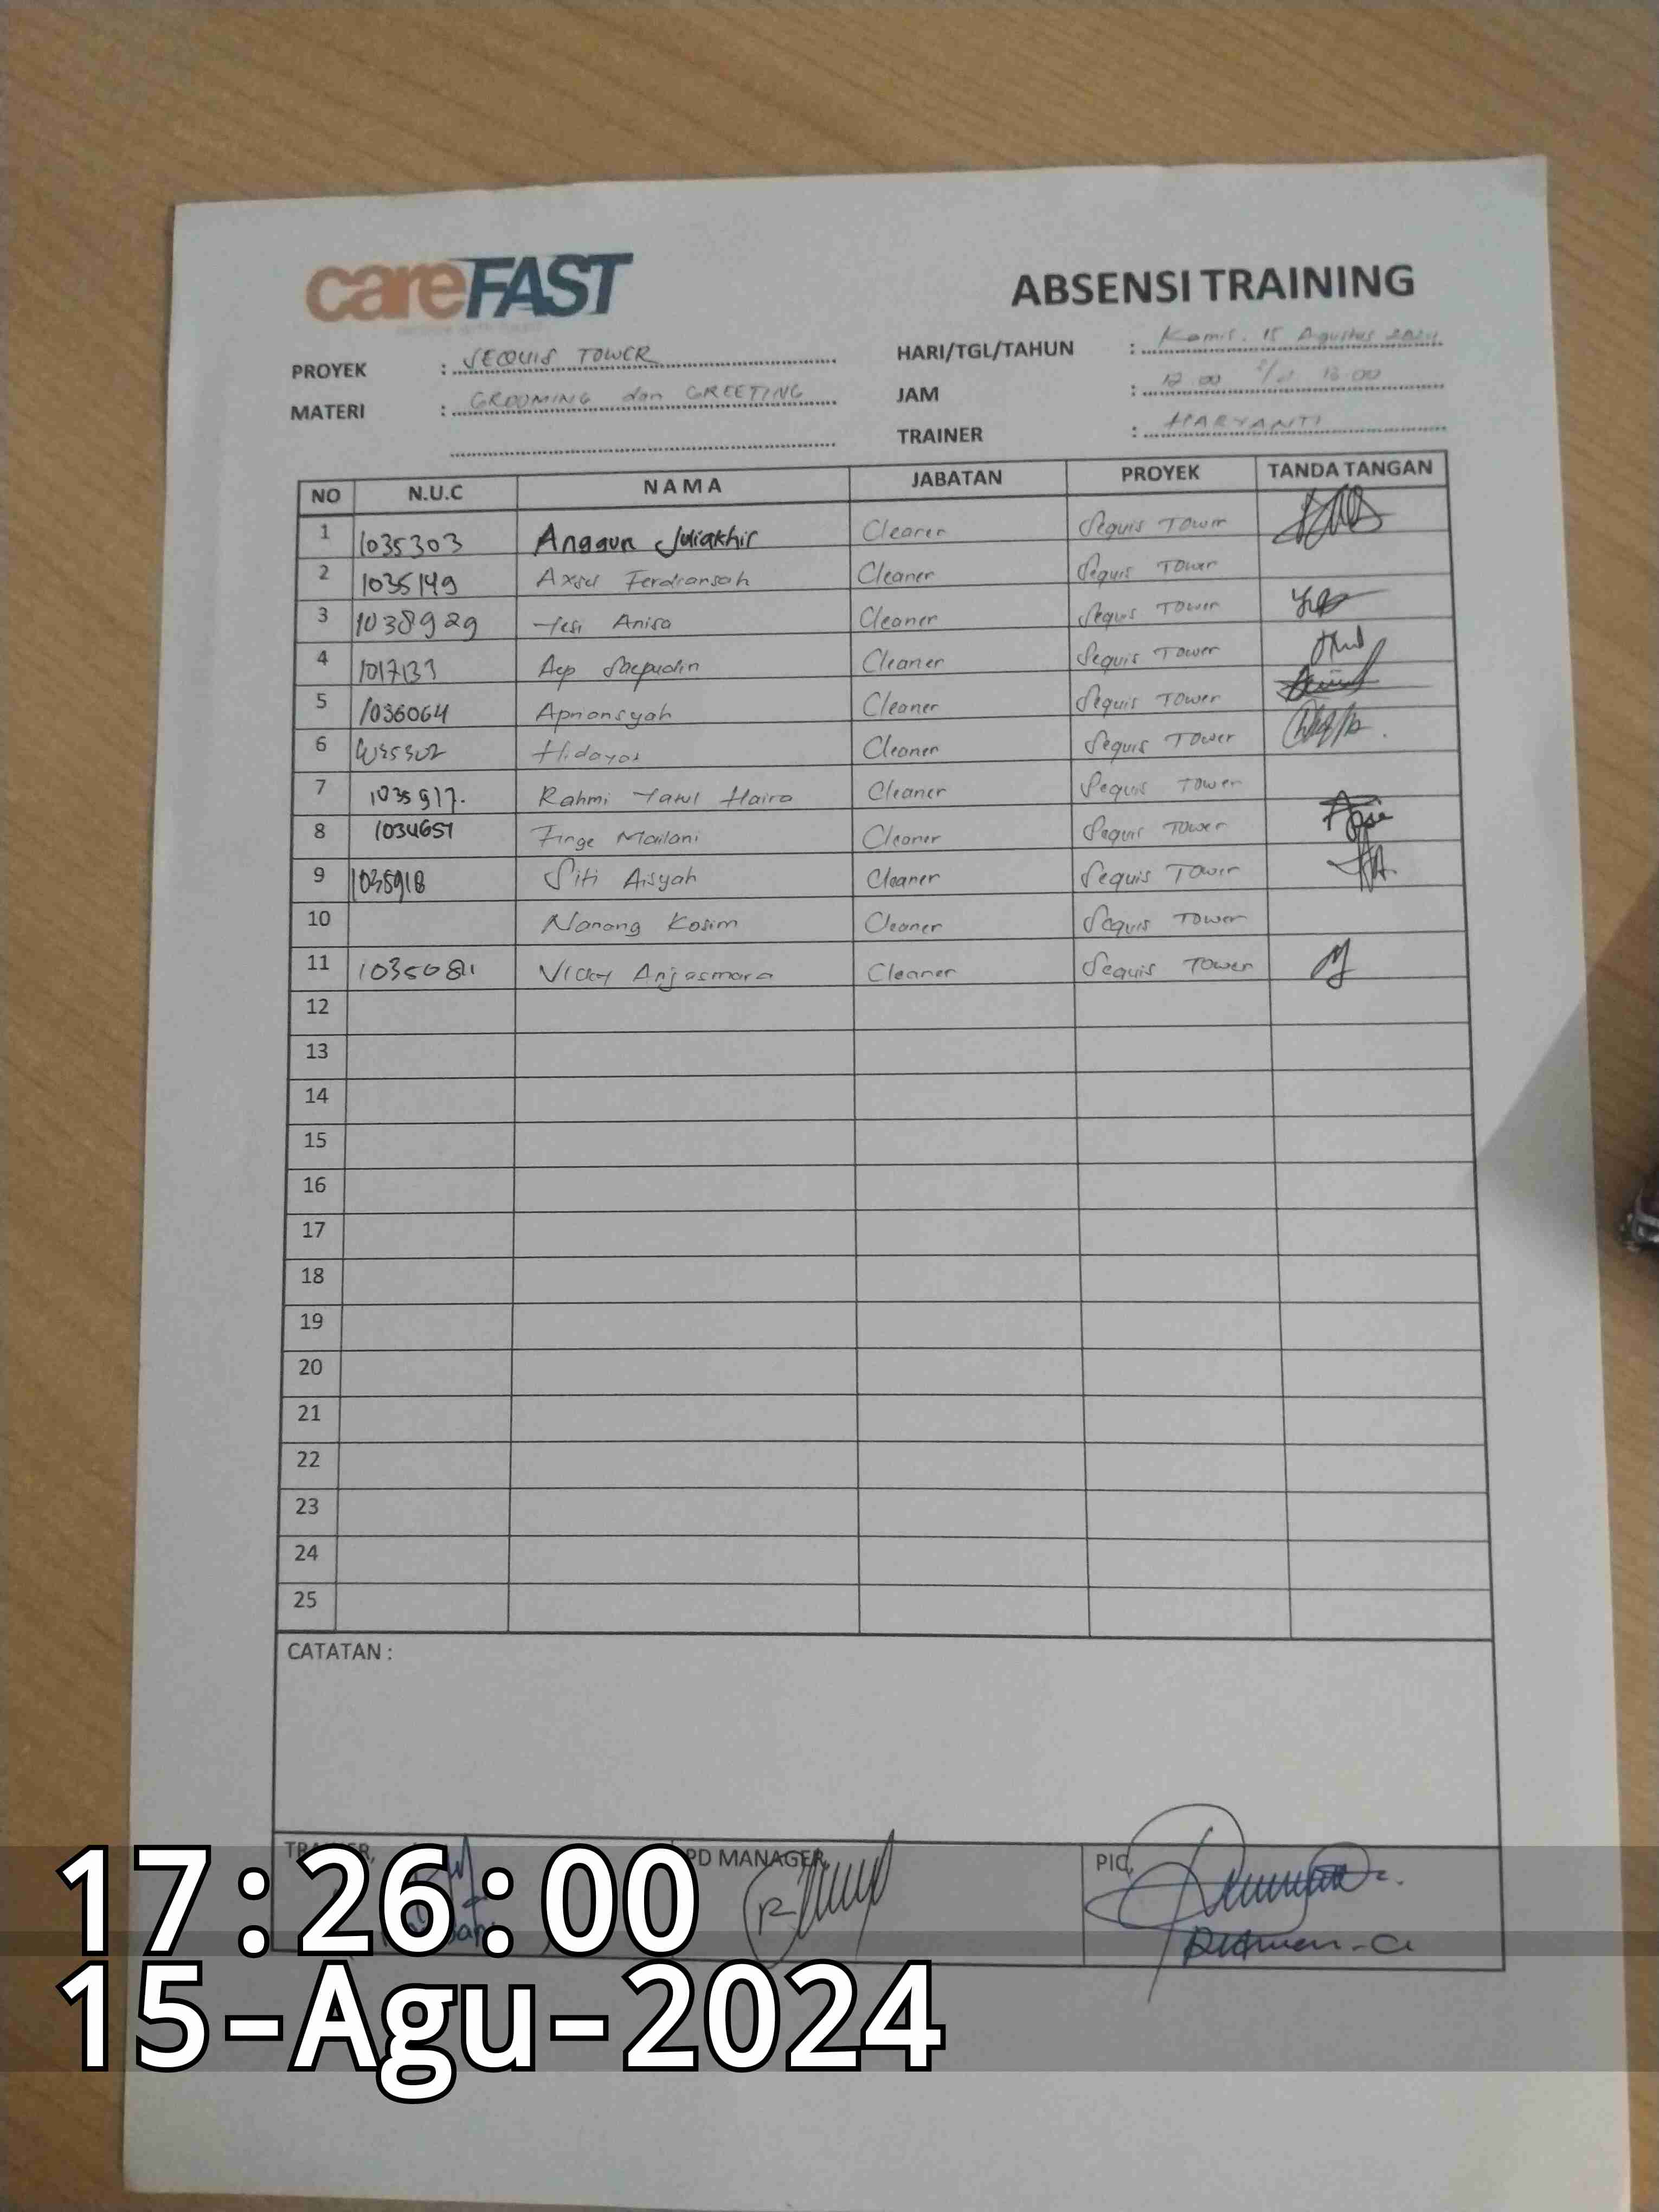 careFAST
ABSENSI TRAINING
PROYEK : SEQUIS TOWER
MATERI : GROOMING dan GREETING
HARI/TGL/TAHUN : Kamis, 15 Agustus 2024
JAM : 12.00 s/d 13.00
TRAINER : HARYANTI
NO N.U.C NAMA JABATAN PROYEK TANDA TANGAN
1 1035303 Anggun Juliakhir Cleaner Sequis Tower
2 1035149 Axsel Ferdiansah Cleaner Sequis Tower
3 1038929 Yesi Anisa Cleaner Sequis Tower
4 1017133 Aep Saepudin Cleaner Sequis Tower
5 1036064 Apriansyah Cleaner Sequis Tower
6 Hidayat Cleaner Sequis Tower
7 1035917. Rahmi Yatul Haira Cleaner Sequis Tower
8 1034651 Finge Mailani Cleaner Sequis Tower
9 1035918 Siti Aisyah Cleaner Sequis Tower
10 Nanang Kosim Cleaner Sequis Tower
11 1035081 Vicky Anjasmara Cleaner Sequis Tower
12
13
14
15
16
17
18
19
20
21
22
23
24
25
CATATAN :
TRAINER, PD MANAGER, PIC,
17:26:00
15-Agu-2024